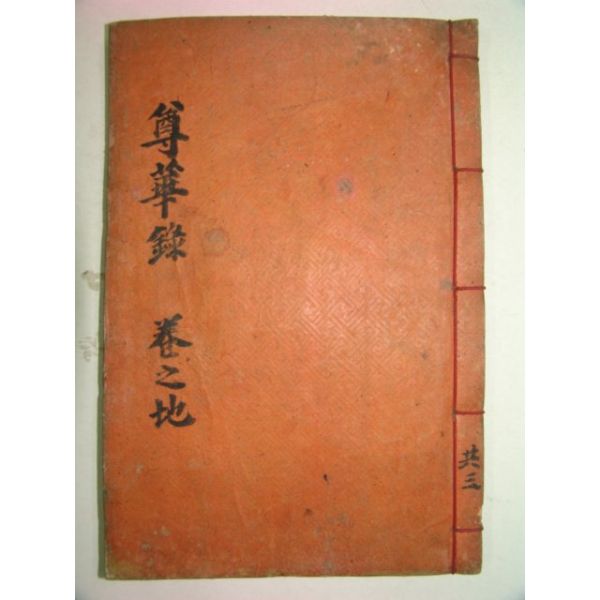 尊華錄 卷之地
共三